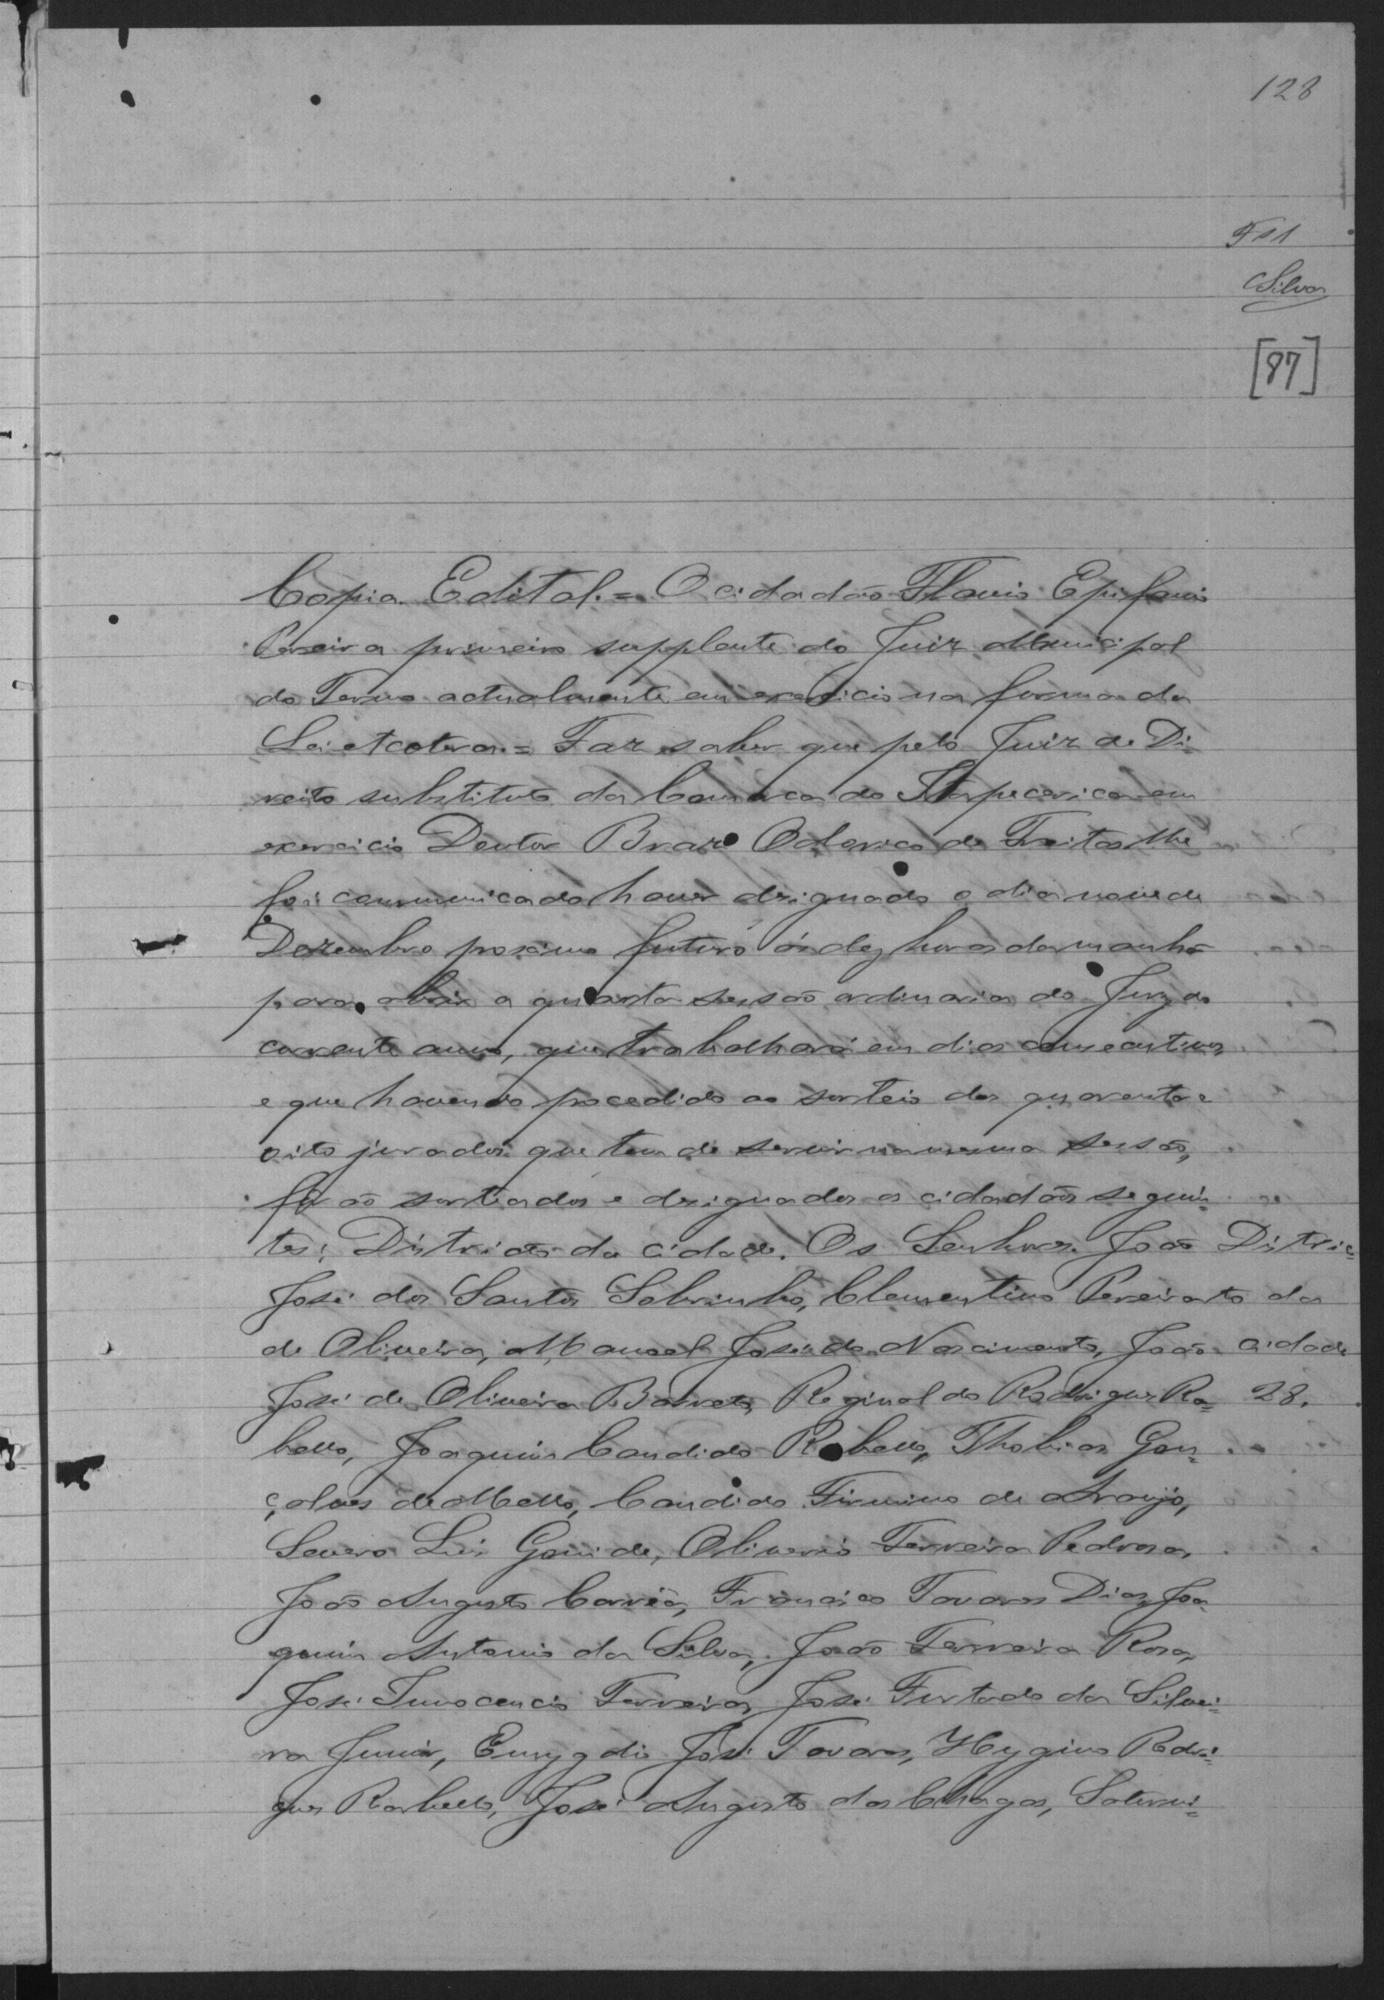 128
Fs 1
Silva
[87]
Copia. Edital. = O cidadão Flavio Epifanio
Pereira primeiro supplente do Juiz Municipal
do Termo actualmente em exercicio na forma da
Lei etcetera = Faz saber que pelo Juiz de Di-
reito substituto da Comarca do Itapecerica em
exercicio Doutor Braz Oderico de Freitas lhe
foi communicado haver designado o dia nove de
Dezembro proximo futuro ás dez horas da manhã
para abrir a quarta sessão ordinaria do Jury do
corrente anno, que trabalhará em dias consecutivos
e que havendo procedido ao sorteio dos quarenta e
oito jurados que tem de servir na mesma sessão,
forão sorteados e designados os cidadãos seguin-
tes: Districto da cidade. Os Senhores João
José dos Santos Sobrinho, Clementino Pereira
de Oliveira, Manoel José do Nascimento, João
José de Oliveira Barreto, Reginaldo Rodrigues Ra-
bello, Joaquim Candido Rabello, Thobias Gon-
çalves de Mello, Candido Firmino de Araujo,
Severo Luis Gonide, Oliverio Ferreira Pedrosa,
João Augusto Corrêa, Francisco Tavares Dias, Joa-
quim Antonio da Silva, João Ferreira Rosa,
José Innocencio Ferreira, José Furtado da Silvei-
ra Junior, Emygdio José Tavares, Hygino Rodri-
gues Rabello, José Augusto das Chagas, Saturni-
Distric-
to da
cidade
28.